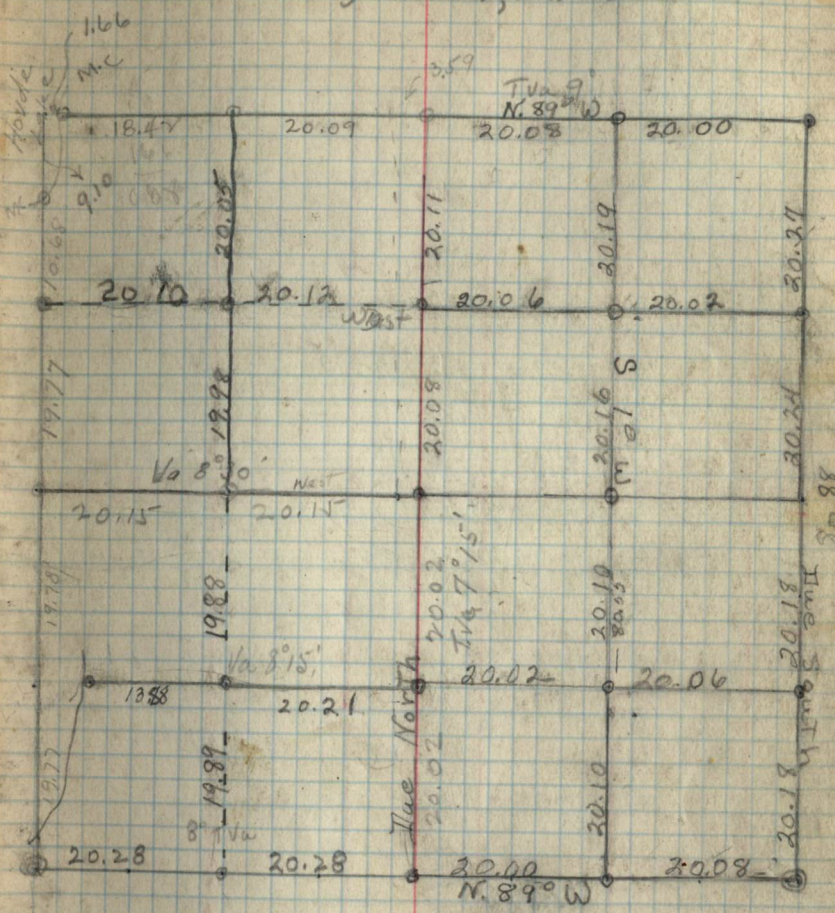 1.66
M.C
3.59
Tva 9°
N. 89° W
18.42
20.09
20.08
20.00
9.10
20.05
20.11
20.19
20.27
10.68
20.10
20.12
West
20.06
20.02
19.77
19.98
20.08
S 1° W
20.16
20.24
Va 8°
West
20.15
20.15
88
19.78
19.88
20.02
Tva 7° 15'
20.10
80.55
20.18
Due South
Va 8° 15'
13.88
20.21
20.02
20.06
19.77
19.89
Due North
20.02
20.10
20.18
8° Tva
20.28
20.28
20.00
20.08
N. 89° W